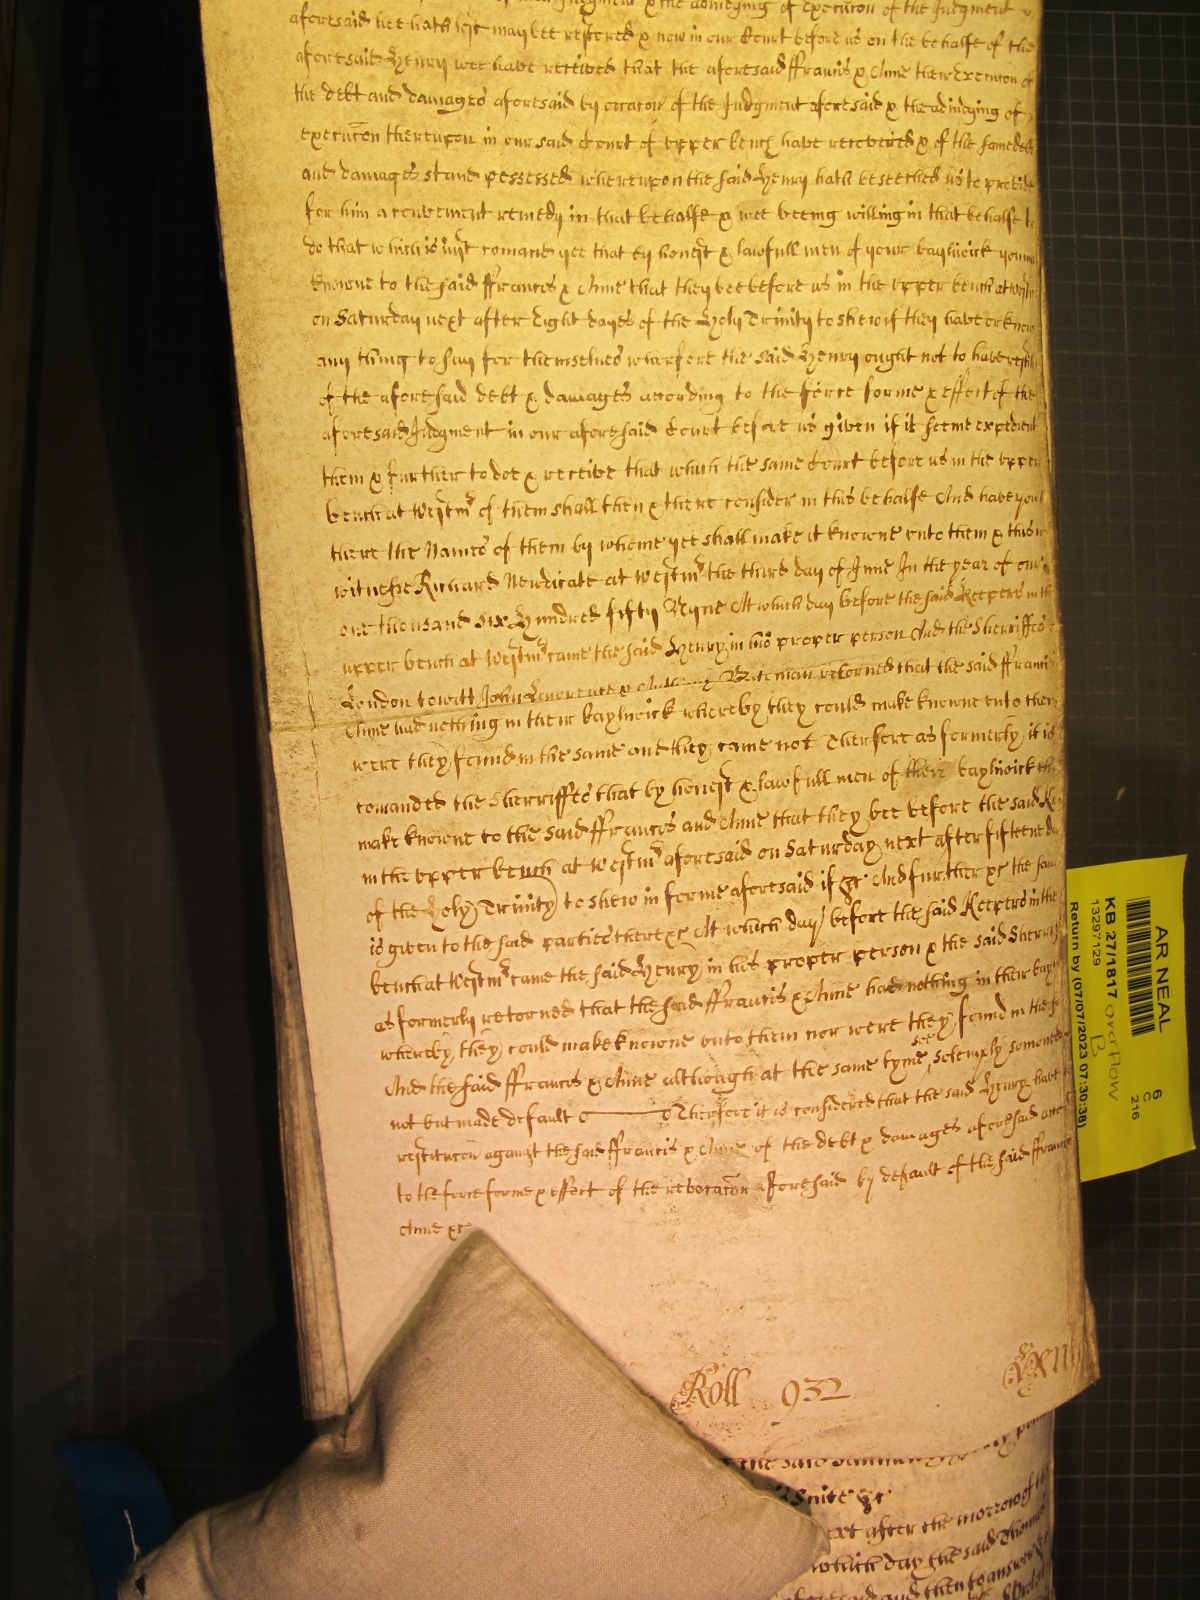 of them Judgment & the adiudging of execucon of the Judgment
aforesaid hee hath lost may bee restored & now in our Court before us on the behalfe of the
aforesaid Henry wee have received that the aforesaid Francis & Anne their execucon of
the debt and damages aforesaid by occacon of the Judgment aforesaid & the adiudging of
execucon thereupon in our said Court of upper bench have recovered & of the same debt
and damages stand possessed whereupon the said Henry hath beseeched us to provide
for him a convenient remedy in that behalfe & wee beeing willing in that behalfe to
do that which is iust comand yee that by honest & lawfull men of your bayliwick you make
knowne to the said Francis & Anne that they bee before us in the upper bench at Westm
on Saturday next after Eight dayes of the Holy Trinity to shew if they have or know
any thing to say for themselves wherfore the said Henry ought not to have restitucon
of the aforesaid debt & damages according to the force forme & effect of the
aforesaid Judgment in our aforesaid Court before us given if it seeme expedient
them & further to doe & receive that which the same Court before us in the upper
bench at Westm of them shall then & there consider in this behalfe And have you
there the Names of them by whome yee shall make it knowne unto them & this
witnesse Richard Newdicate at Westm the third day of June In the year of our
one thousand six Hundred fifty Nyne At which day before the said Keepers in the
upper bench at Westm came the said Henry in his proper person And the Sherriffes
London to witt John Lawrence & Bateman retorned that the said Francis
Anne had nothing in their bayliwick whereby they could make knowne unto them
were they found in the same and they came not Therfore as formerly it is
comanded the Sherriffes that by honest & lawfull men of their bayliwick they
make knowne to the said Francis and Anne that they bee before the said Keepers
in the upper bench at Westm aforesaid on Saturday next after fifteene dayes
of the Holy Trinity to shew in forme aforesaid if &c And further &c the same
is given to the said parties there &c At which day before the said Keepers in the
bench at Westm came the said Henry in his proper person & the said Sherriffes
as formerly retorned that the said Francis & Anne had nothing in their bayliwick
whereby they could make knowne unto them nor were they found in the
And the said Francis & Anne although at the same tyme solemply somoned
not but made default Therfore it is considered that the said Henry have
restitucon against the said Francis & Anne of the debt & damages aforesaid
to the force forme & effect of the revocacon aforesaid by default of the said Francis
Anne &c
Roll 932
the said
Suite &c
next after the morrow of
which day the said Thomas
and then to answer
AR NEAL
KB 27/1817 overflow
B
13297129
Return by (07/07/2023 07:30:38)
6
C
216